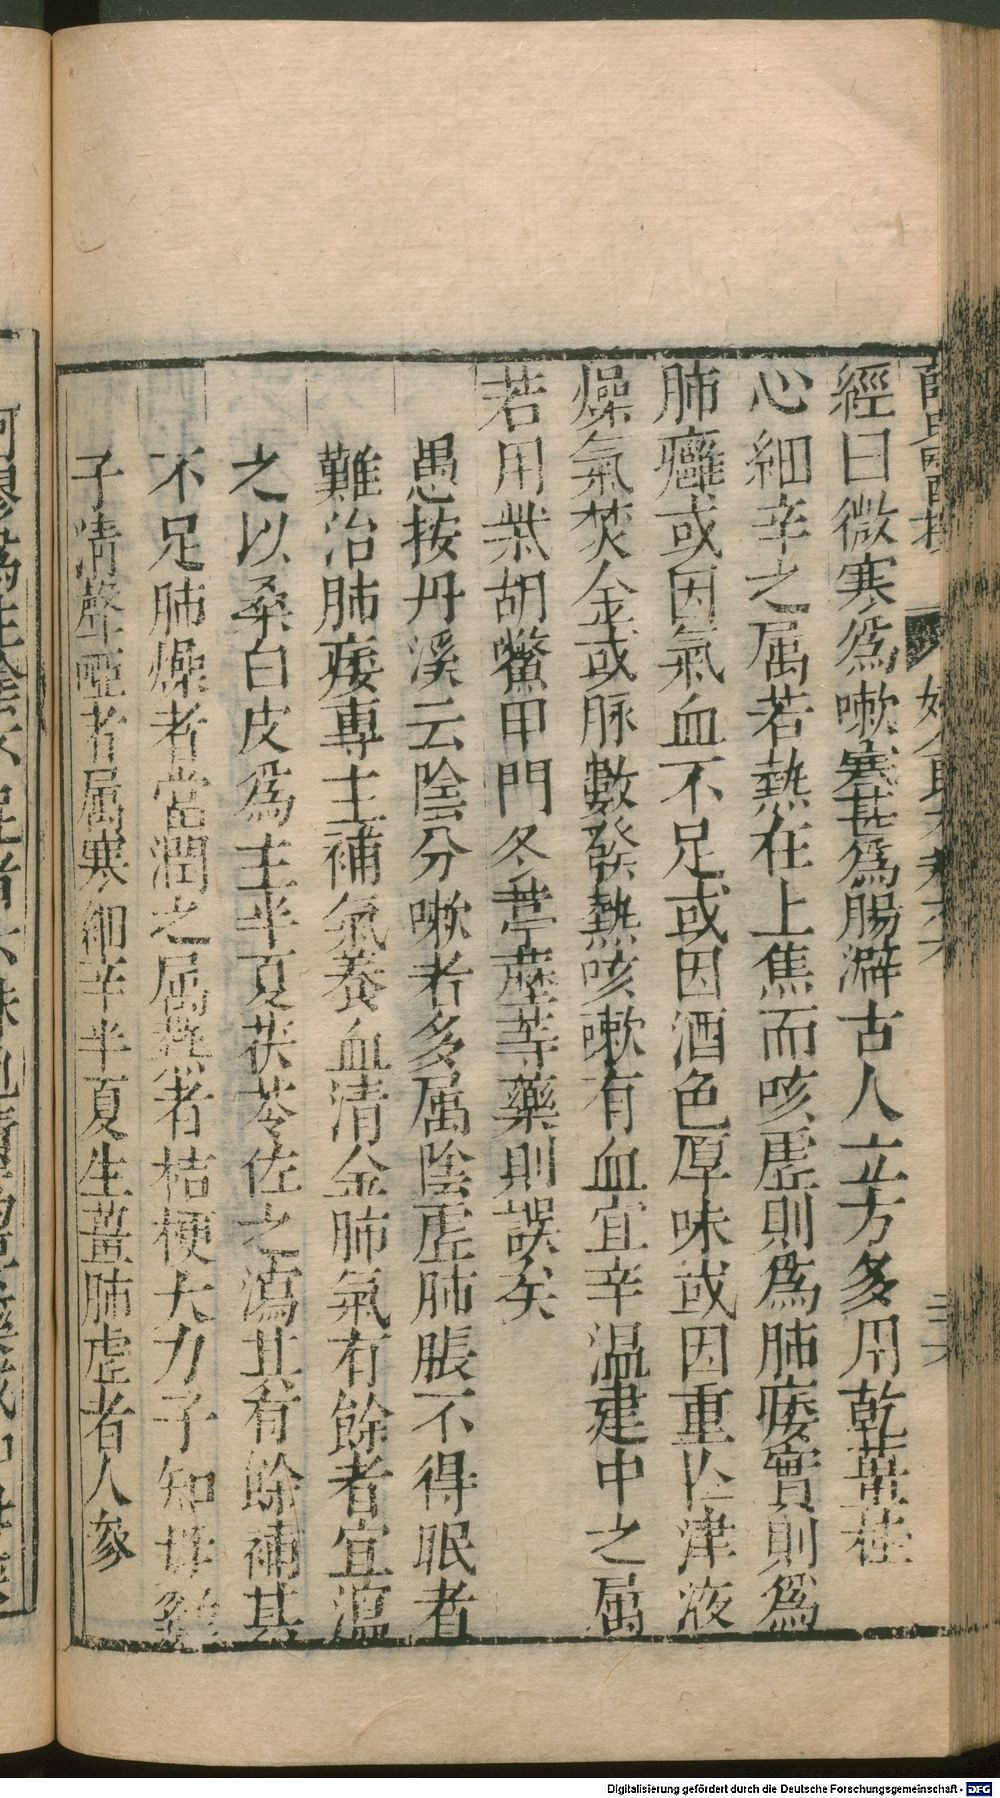 經曰微寒爲嗽寒甚爲腸澼古人立方多用乾薑桂
心細辛之属若熱在上焦而咳虚則爲肺痿實則爲
肺癰或因氣血不足或因酒色厚味或因重亾津液
燥氣焚金或脉數發熱咳嗽有血宜辛温建中之属
若用柴胡鱉甲門冬葶藶等藥則誤矣
愚按丹溪云陰分嗽者多属陰虚肺脹不得眠者
難治肺痿專主補氣養血清金肺氣有餘者宜瀉
之以桑白皮爲主半夏茯苓佐之瀉其有餘補其
不足肺燥者當潤之属熱者桔梗大力子知母
子清聲啞者属寒細辛半夏生薑肺虚者人參
Digitalisierung gefördert durch die Deutsche Forschungsgemeinschaft - DFG